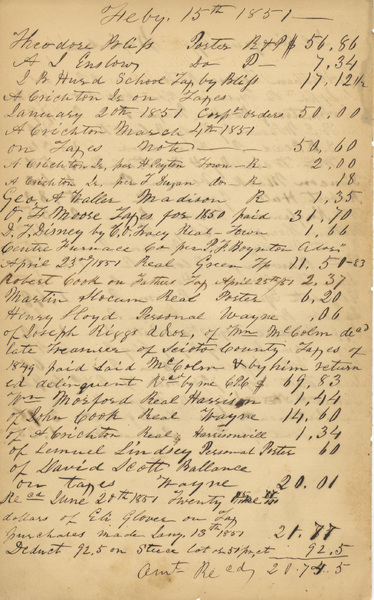 Feby. 15th 1851
Theodore Bliss Porter R & P $ 56.86
A I Enslow Do P 7.34
I B Hurd School Tax by Bliss 17.12
A Crichton Dr on Taxes
January 20th 1851 Corpt orders 50.00
A Crichton March 4th 1851
on Taxes Note 50.60
A Crichton Dr, per H Peyton Town R 2.00
A Crichton Dr. per T Dugan do R 18
Geo. A Waller Madison R 1.35
O. F. Moore Taxes for 1850 paid 31.70
I. F. Disney by C.O. Tracy Real Town 1.66
Centre Furnace Co per P. J. Boynton Ador
April 23rd 1851 Real Green Tp 11.50
Robert Cook on Fathers Tax April 25th 51 2.37
Martin Slocum Real Porter 6.20
Henry Floyd Personal Wayne .06
of Joseph Riggs Ador, of Wm McColm dead
late Treasurer of Scioto County Taxes of
1849 paid Said McColm & by him return
ed delinquent Recd by me $69.83
Wm Morford Real Harrison 1.44
of John Cook Real Wayne 14.60
of A Crichton Real Harrisonville 1.34
of Lemuel Lindsey Personal Porter 60
of David Scott Ballance
on taxes Wayne 20.01
Recd June 20th 1851 Twenty
dollars of Eli Glover on Tax
purchases made Jany. 13th 1851 21.77
Deduct 92.5 on Stice lot or 50 pr. ct 92.5
Amt Recd, 20.74.5